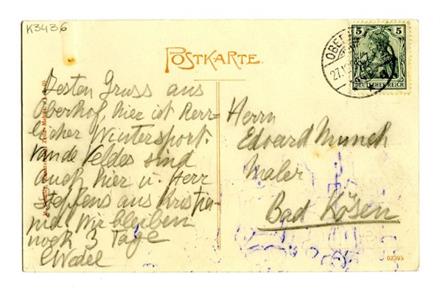 K3436
POSTKARTE.
5 5
DEUTSCHES REICH
OBERH
27.1
Besten Gruss aus
Oberhof, hier ist herr-
licher Wintersport.
van de Veldes sind
auch hier u. Herr
aus Kristia-
nia. Wir bleiben
noch 3 Tage
Herrn
Edvard Munch
Maler
Bad Kösen